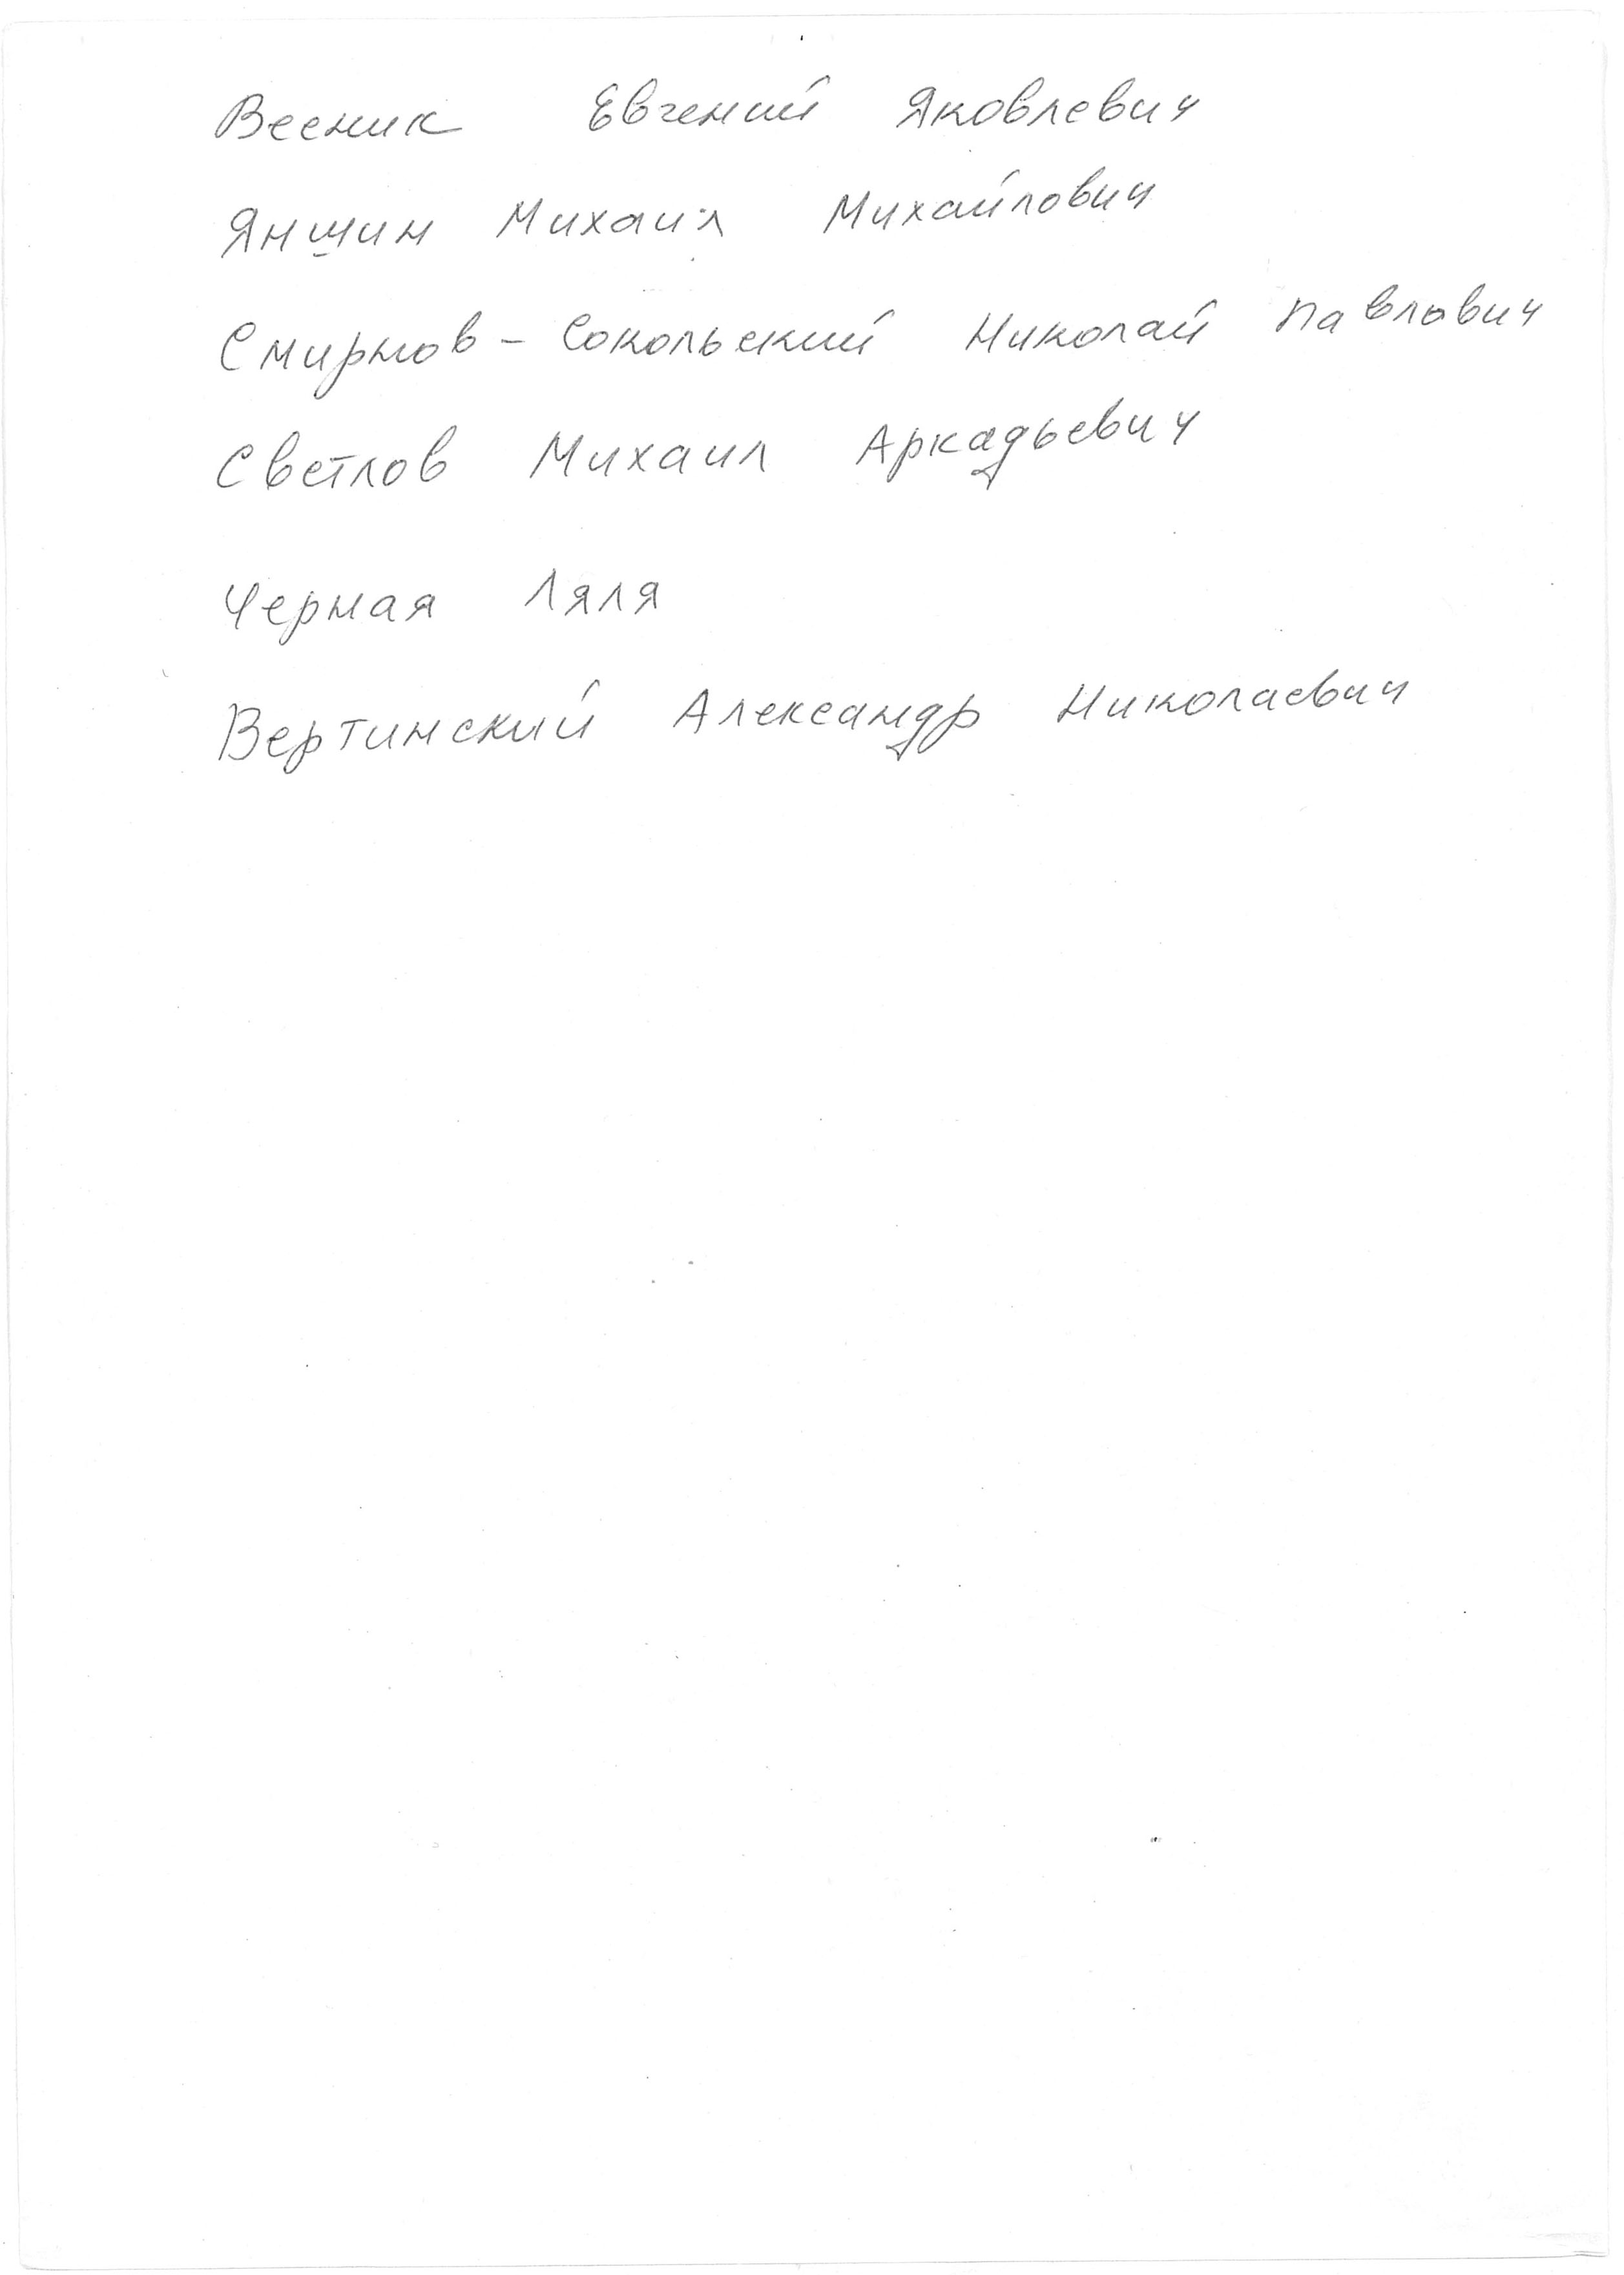 Весник Евгений Яковлевич
Яншин Михаил Михайлович
Смирнов-Сокольский Николай Павлович
Светлов Михаил Аркадьевич
Черная Ляля
Вертинский Александр Николаевич